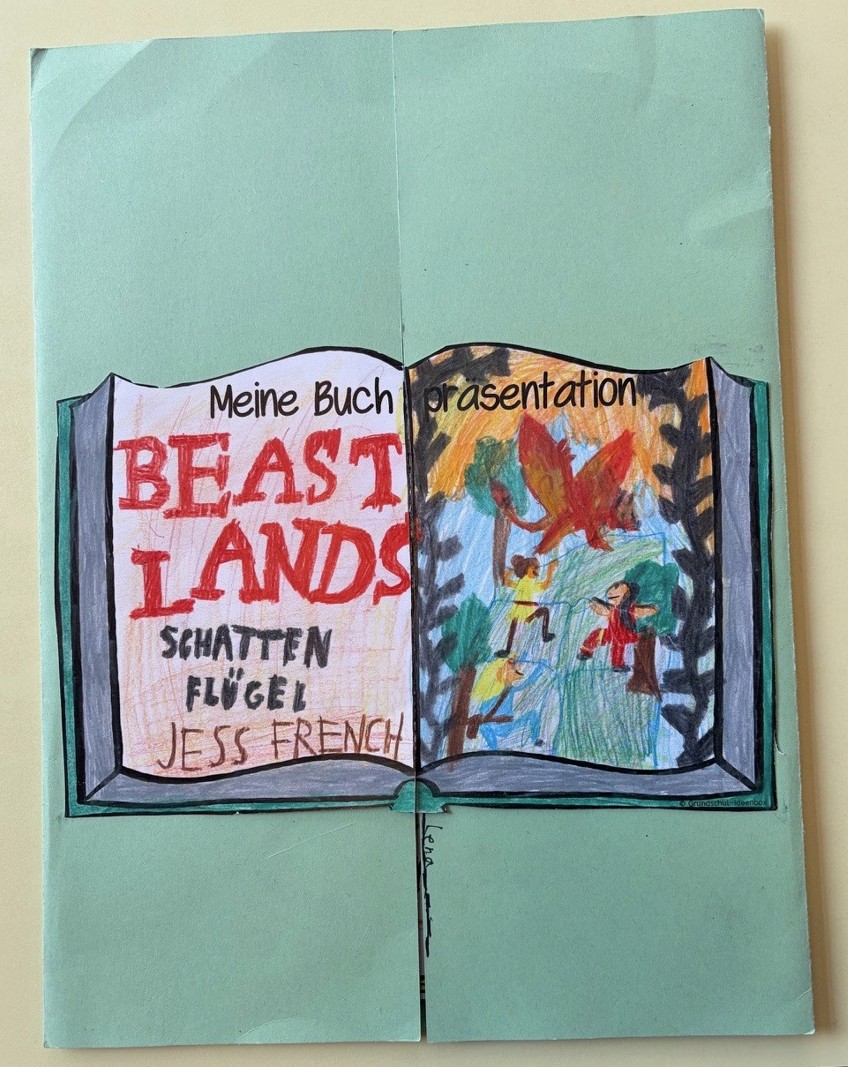 Meine Buchpräsentation
BEAST
LANDS
SCHATTEN
FLÜGEL
JESS FRENCH
© Grundschul-Ideenbox
Lena